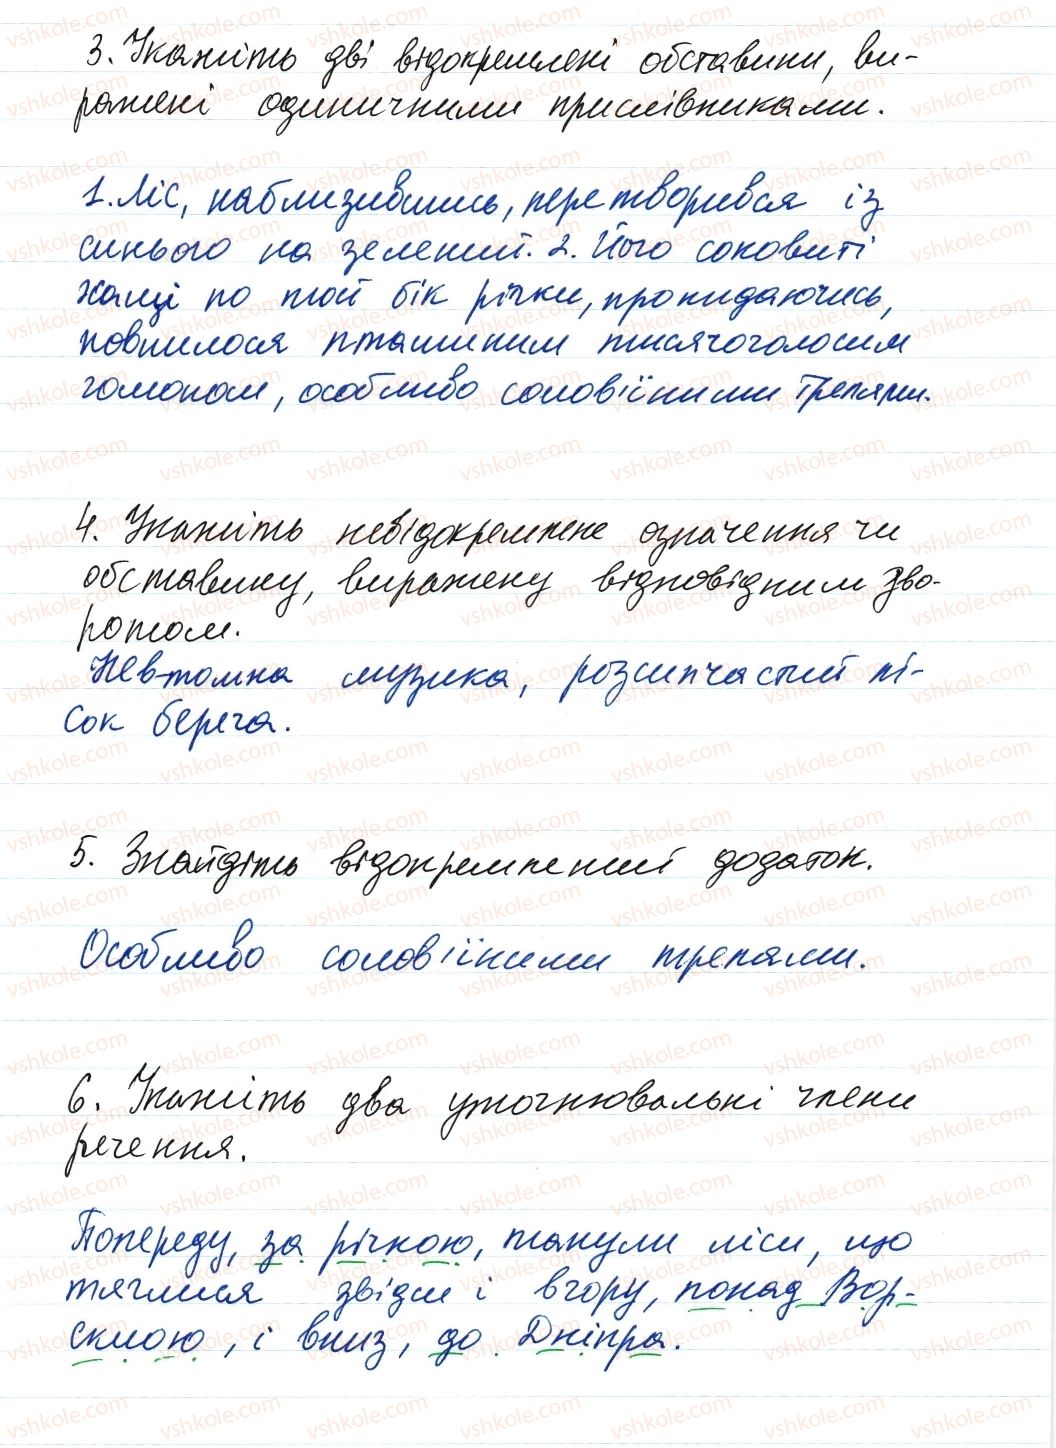 3. Укажіть дві відокремлені обставини, ви-
ражені одиничними прислівниками.
1. Ліс, наблизившись, перетворився із
синього на зелений. 2. Його соковиті
хащі по той бік річки, прокидаючись,
повнилося пташиним тисячоголосим
гомоном, особливо солов'їними трелями.
4. Укажіть невідокремлене означення чи
обставину, виражену відповідним зво-
ротом.
Невтомна музика, розсипчастий пі-
сок берега.
5. Знайдіть відокремлений додаток.
Особливо солов'їними трелями.
6. Укажіть два уточнювальні члени
речення.
Попереду, за річкою, танули ліси, що
тяглися звідси і вгору, понад Вор-
склою, і вниз, до Дніпра.